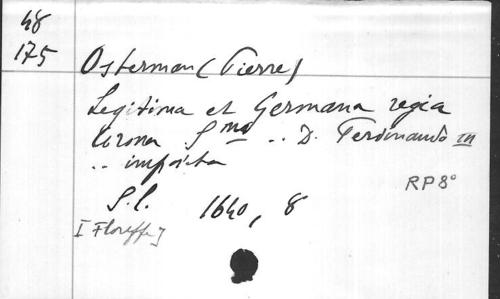 48
175
Osterman (Pierre)
Legitima et Germana regia
Corona S^mo .. D. Ferdinando III
.. imposita
S.l. 1640, 8
RP 8°
[Floreffe]